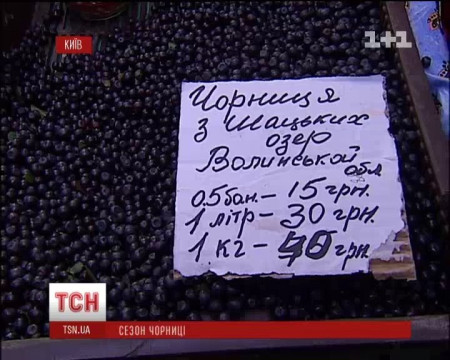 КИЇВ
1+1
Чорниця
з Шацьких
озер
Волинської
обл
0.5 бан. – 15 грн.
1 літр – 30 грн.
1 кг – 40 грн.
ТСН
TSN.UA
СЕЗОН ЧОРНИЦІ